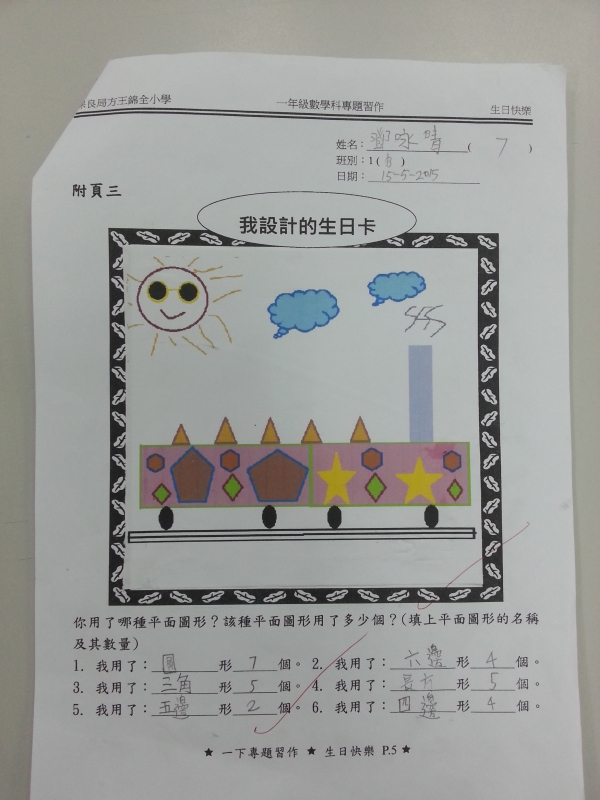 保良局方王錦全小學 一年級數學科專題習作 生日快樂
姓名：鄧咏晴( 7 )
班別：1 ( )
日期：15-5-2015
附頁三
我設計的生日卡
你用了哪種平面圖形？該種平面圖形用了多少個？(填上平面圖形的名稱
及其數量)
1. 我用了：圓形 7 個。 2. 我用了：六邊形 4 個。
3. 我用了：三角形 5 個。 4. 我用了：長方形 5 個。
5. 我用了：五邊形 2 個。 6. 我用了：四邊形 4 個。
★ 一下專題習作 ★ 生日快樂 P.5 ★